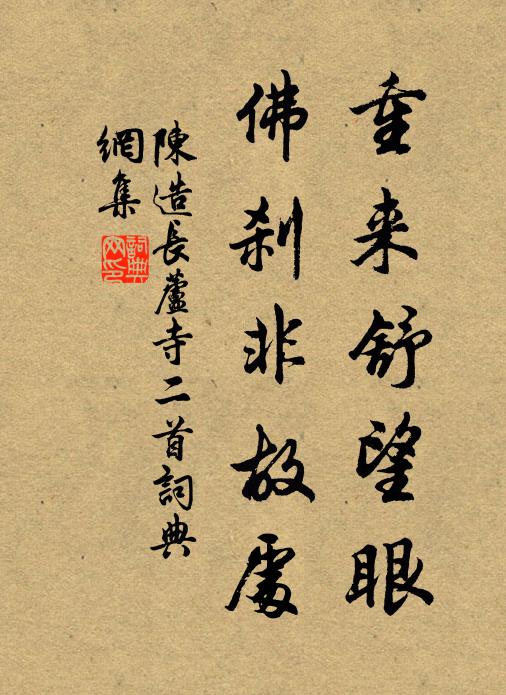 重来舒望眼
佛刹非故處
陳造長蘆寺二首詞典
網集
詞典
网印